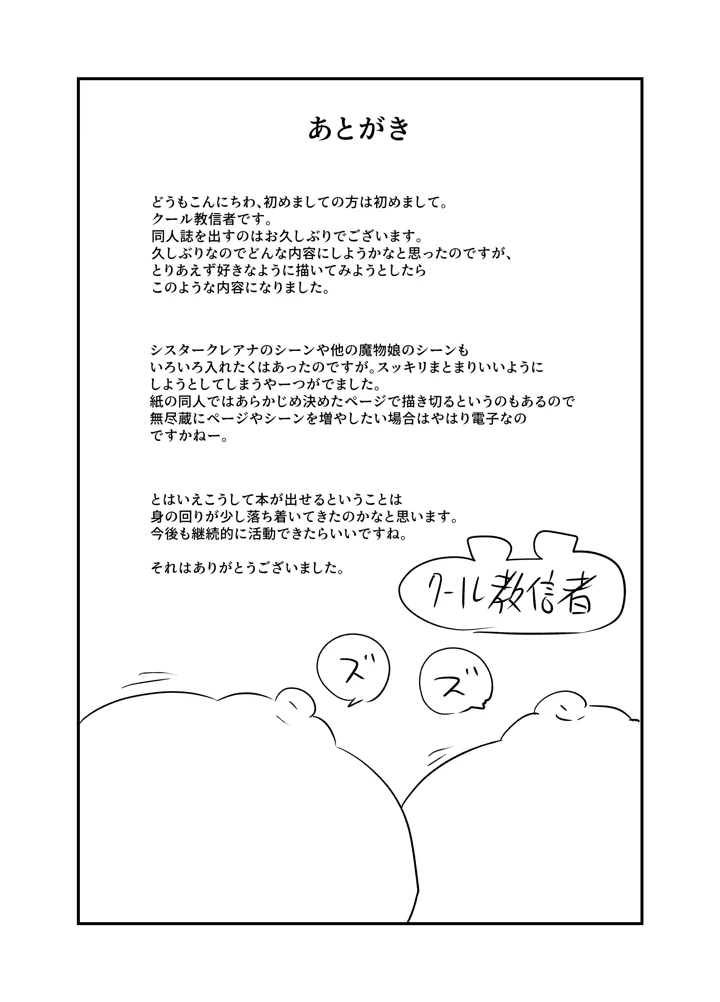 あとがき
どうもこんにちわ、初めましての方は初めまして。
クール教信者です。
同人誌を出すのはお久しぶりでございます。
久しぶりなのでどんな内容にしようかなと思ったのですが、
とりあえず好きなように描いてみようとしたら
このような内容になりました。
シスタークレアナのシーンや他の魔物娘のシーンも
いろいろ入れたくはあったのですが。スッキリまとまりいいように
しようとしてしまうやーつがでました。
紙の同人ではあらかじめ決めたページで描き切るというのもあるので
無尽蔵にページやシーンを増やしたい場合はやはり電子なの
ですかねー。
とはいえこうして本が出せるということは
身の回りが少し落ち着いてきたのかなと思います。
今後も継続的に活動できたらいいですね。
それはありがとうございました。
クール教信者
ズ
ズ